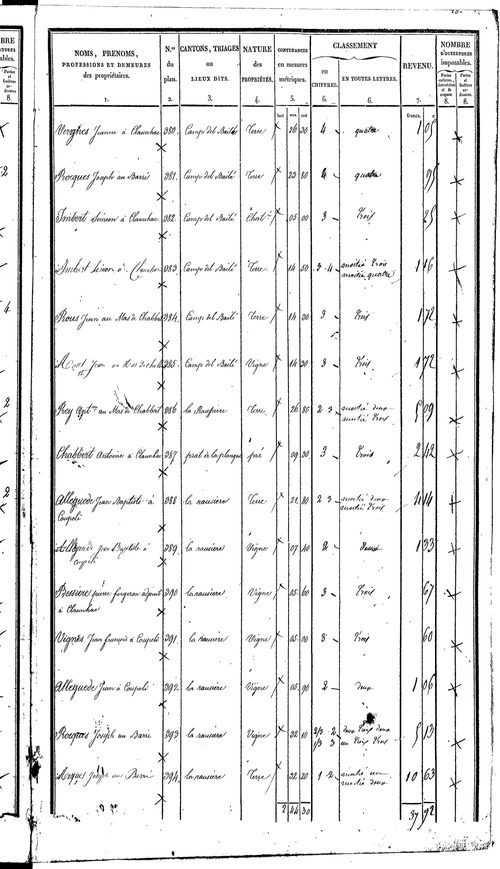 NOMS, PRENOMS, PROFESSIONS ET DEMEURES des propriétaires. N.os du plan. CANTONS, TRIAGES ou LIEUX DITS. NATURE des PROPRIÉTÉS. CONTENANCES en mesures métriques. CLASSEMENT en CHIFFRES. EN TOUTES LETTRES. REVENU. NOMBRE D'OUVERTURES imposables.
1. 2. 3. 4. 5. 6. 6. 7. 8. 8.
francs. c.
Verghes Jeanne à Claunhac 380. Camp del Baile Terre 26 30 4 quatre 1 05
Rocques Joseph au Barri 381. Camp del Baile Terre 23 80 4 quatre 95
Imbert Simon à Claunhac 382. Camp del Baile 05 00 3 Trois 85
Imbert Simon à 383. Camp del Baile Terre 14 50 3. 4 moitié Trois moitié quatre 1 16
Rous Jean au Mas de Chabbert 384. Camp del Baile Terre 14 30 3 Trois 1 72
Jean au Mas de 385. Camp del Baile Vigne 14 30 3 Trois 1 72
Rey au Mas de Chabbert 386 la Terre 26 80 2 3 moitié deux moitié Trois 5 09
Chabbert Antoine à Claunhac 387 prat de la planque pré 09 30 3 Trois 2 42
Alleguede Jean Baptiste à Coupeli 388 la rausiere Terre 21. 80 2 3 moitié deux moitié Trois 4 14
Jean Baptiste à 389. la rausiere Vigne 07 40 2 Deux 1 33
Bessiere pierre forgeron à Claunhac 390 la rausiere Vigne 05 60 3 Trois 67
Vignes Jean françois à Coupeli 391. la rausiere Vigne 05 00 3 Trois 60
Alleguede Jean à Coupeli 392. la rausiere Vigne 05. 90 2 deux 1 06
Rocques Joseph au Barri 393 la rausiere Vigne 32 10 2/3 2 1/3 3 deux Tiers deux un Tiers Trois 5 13
Joseph au Barri 394. la rausiere Terre 32 20 1 2 moitié un moitié deux 10 63
2 44 30 37 92